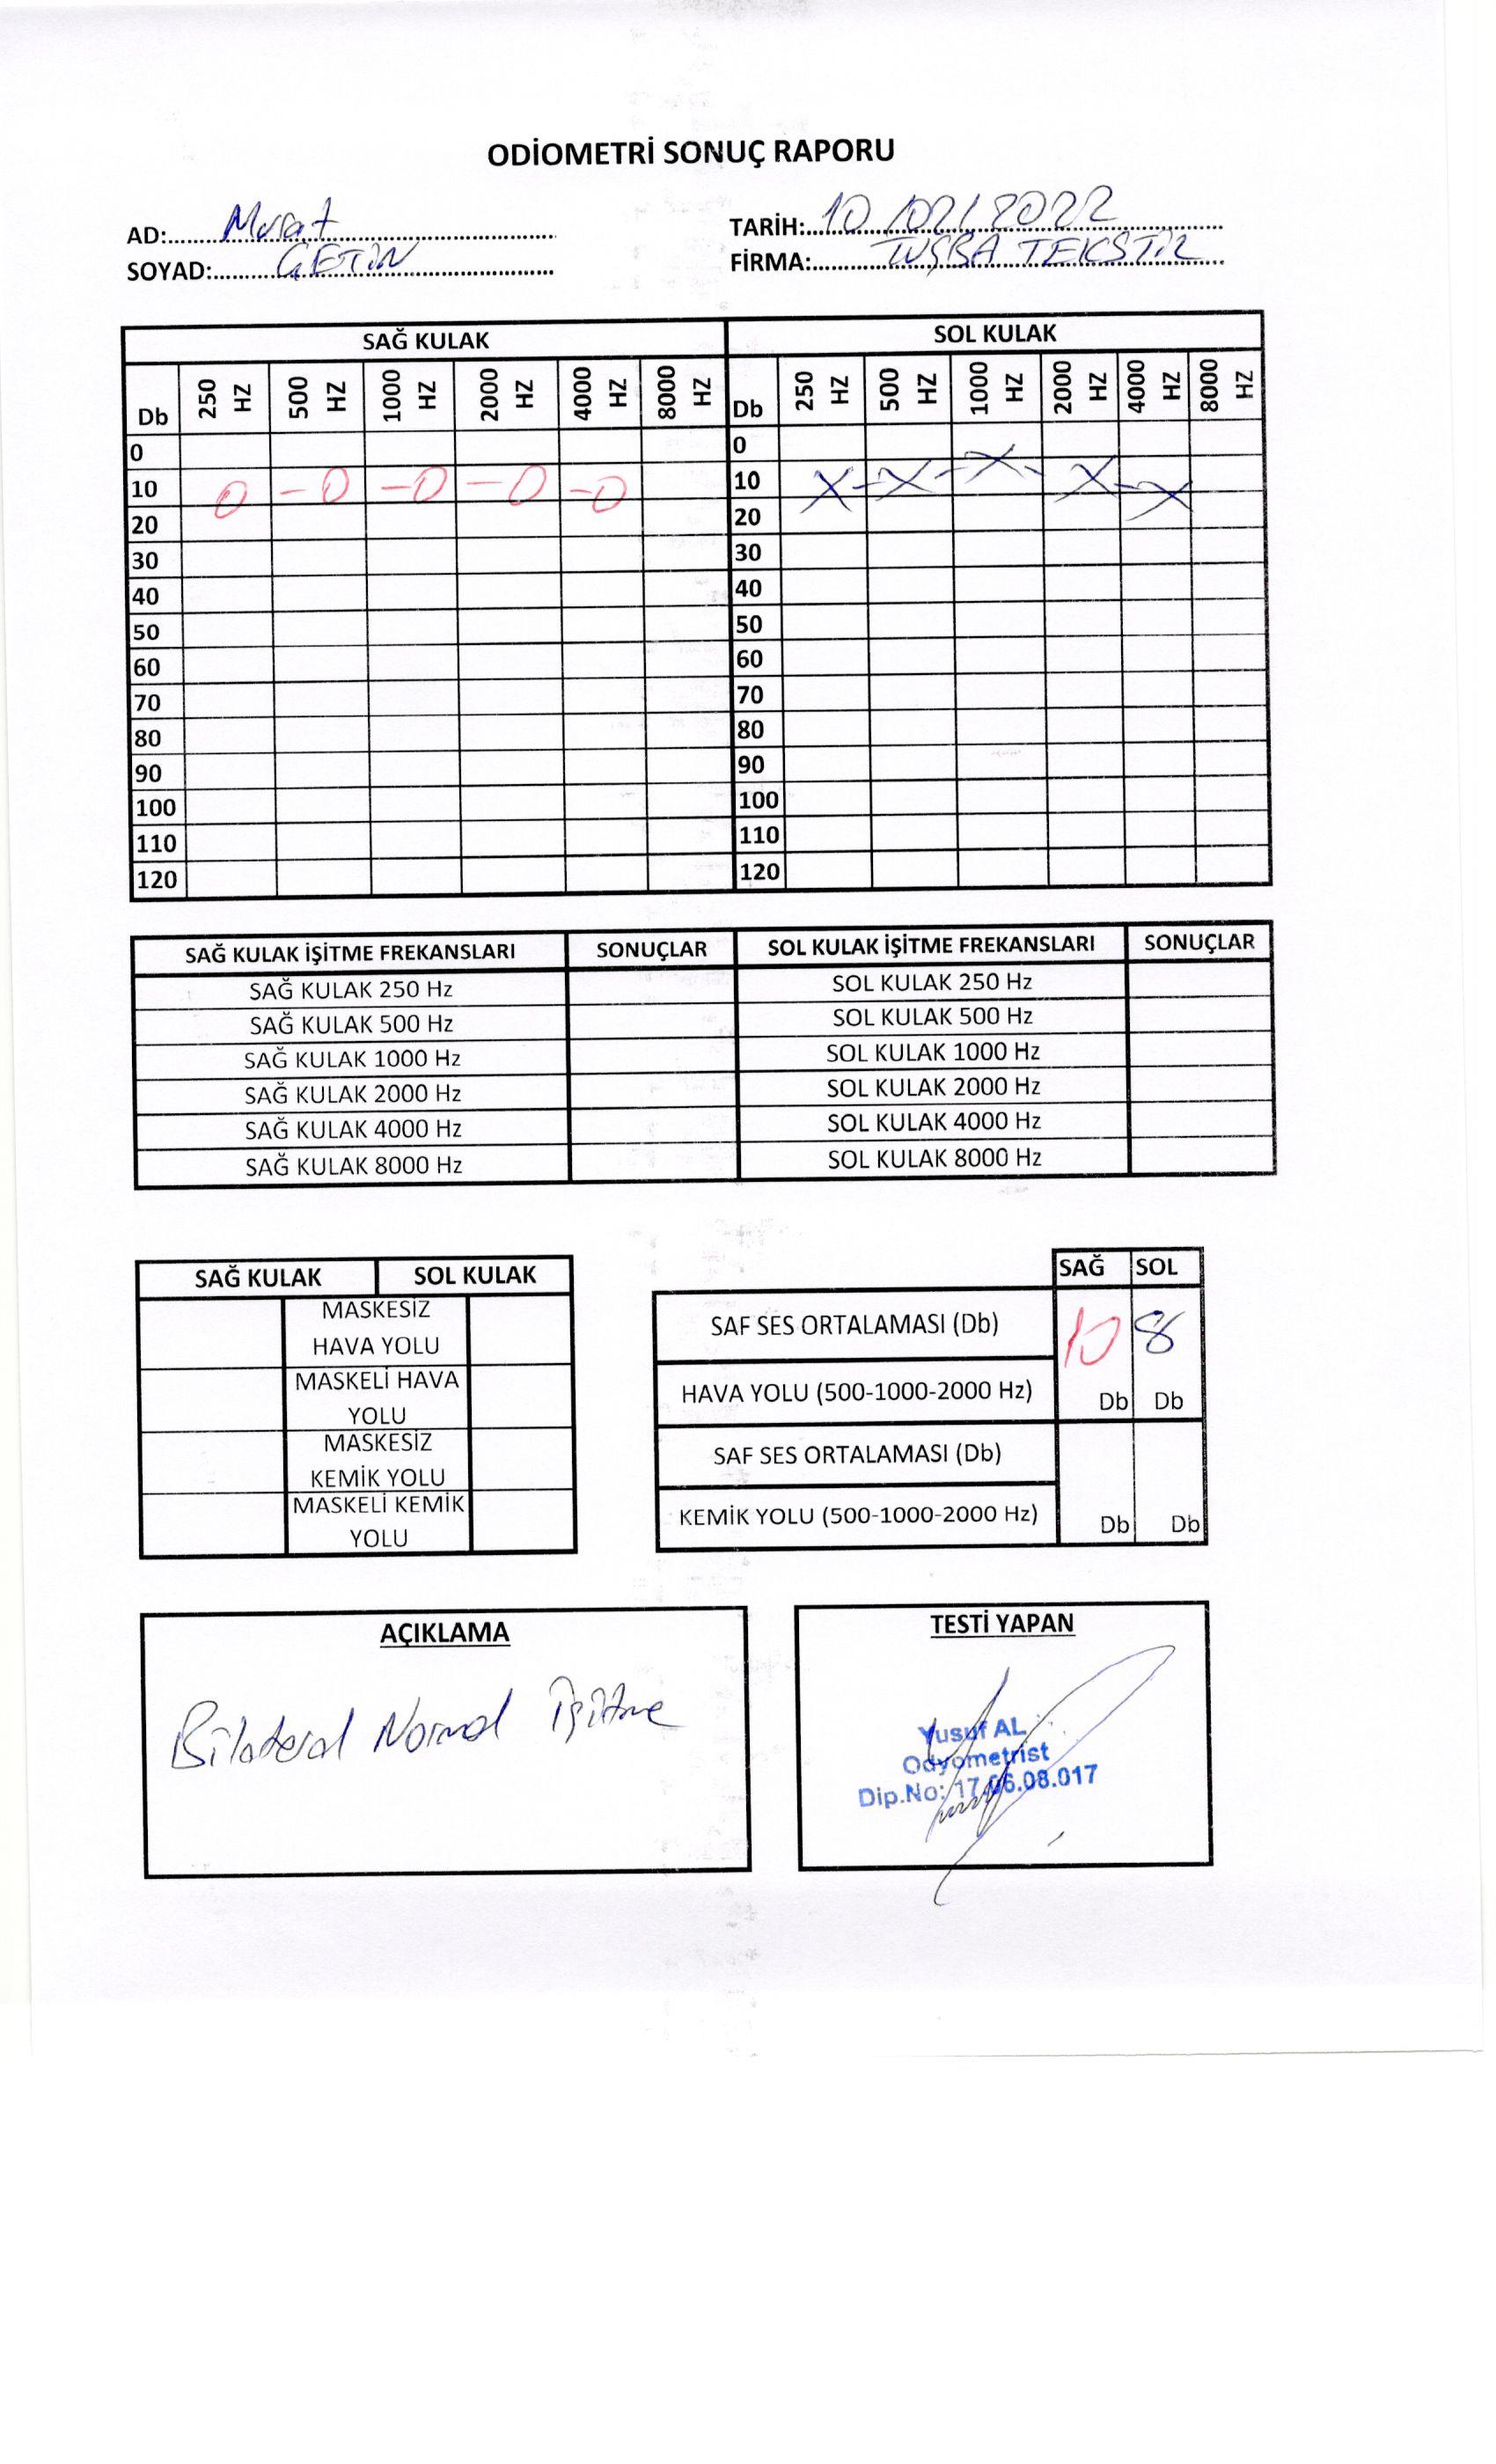 ODİOMETRİ SONUÇ RAPORU
AD: Murat TARİH: 10/02/2022
SOYAD: ÇETİN FİRMA: TUŞBA TEKSTİL
SAĞ KULAK SOL KULAK
Db 250 HZ 500 HZ 1000 HZ 2000 HZ 4000 HZ 8000 HZ Db 250 HZ 500 HZ 1000 HZ 2000 HZ 4000 HZ 8000 HZ
0 0
10 O - O - O - O - O 10 X - X - X - X - X
20 20
30 30
40 40
50 50
60 60
70 70
80 80
90 90
100 100
110 110
120 120
SAĞ KULAK İŞİTME FREKANSLARI SONUÇLAR SOL KULAK İŞİTME FREKANSLARI SONUÇLAR
SAĞ KULAK 250 Hz SOL KULAK 250 Hz
SAĞ KULAK 500 Hz SOL KULAK 500 Hz
SAĞ KULAK 1000 Hz SOL KULAK 1000 Hz
SAĞ KULAK 2000 Hz SOL KULAK 2000 Hz
SAĞ KULAK 4000 Hz SOL KULAK 4000 Hz
SAĞ KULAK 8000 Hz SOL KULAK 8000 Hz
SAĞ KULAK SOL KULAK
MASKESİZ
HAVA YOLU
MASKELİ HAVA
YOLU
MASKESİZ
KEMİK YOLU
MASKELİ KEMİK
YOLU
SAĞ SOL
SAF SES ORTALAMASI (Db) 10 8
HAVA YOLU (500-1000-2000 Hz) Db Db
SAF SES ORTALAMASI (Db)
KEMİK YOLU (500-1000-2000 Hz) Db Db
AÇIKLAMA
Bilateral Normal İşitme
TESTİ YAPAN
Yusuf AL
Odyometrist
Dip.No: 17.06.08.017